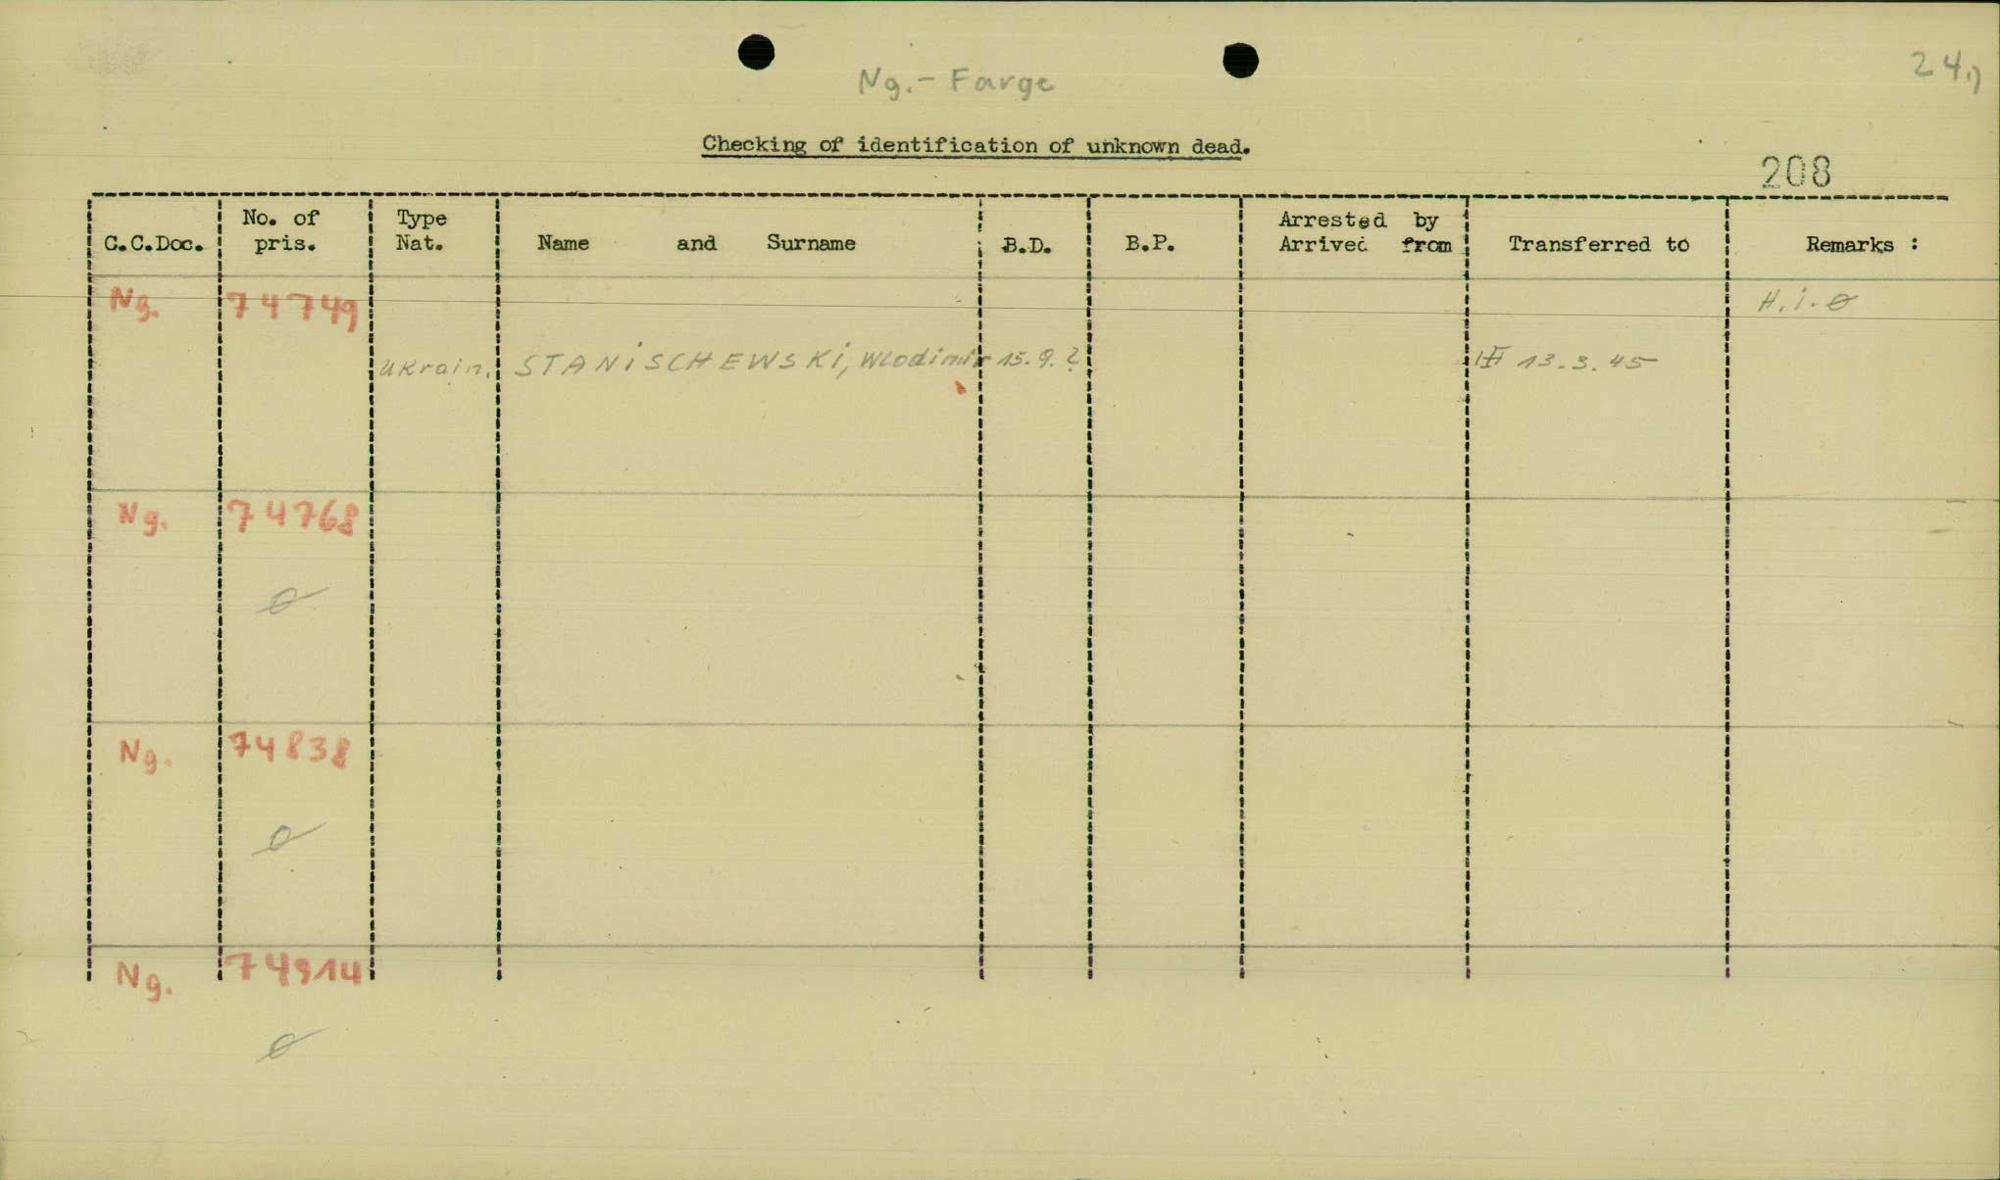 24.)
Ng.- Farge
Checking of identification of unknown dead.
208
C.C.Doc. No. of pris. Type Nat. Name and Surname B.D. B.P. Arrested by Arrived from Transferred to Remarks :
Ng. 74749 H.i.ø
Ukrain. STANiSCHEWSKi, Wlodimir 15.9.? 13.3.45
Ng. 74768
ø
Ng. 74838
ø
Ng. 74914
ø